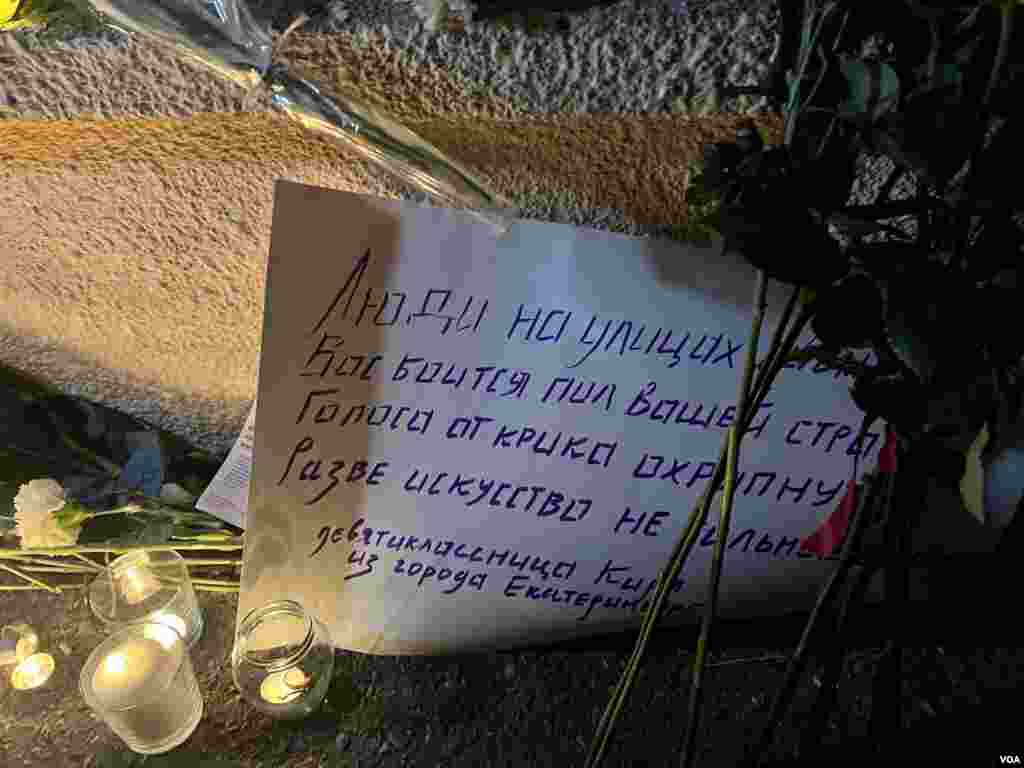 Люди на улицах
Вас боится пол вашей стра
Голоса от крика охрипну
Разве искусство не
девятиклассница Кира
из города Екатеринбург
VOA